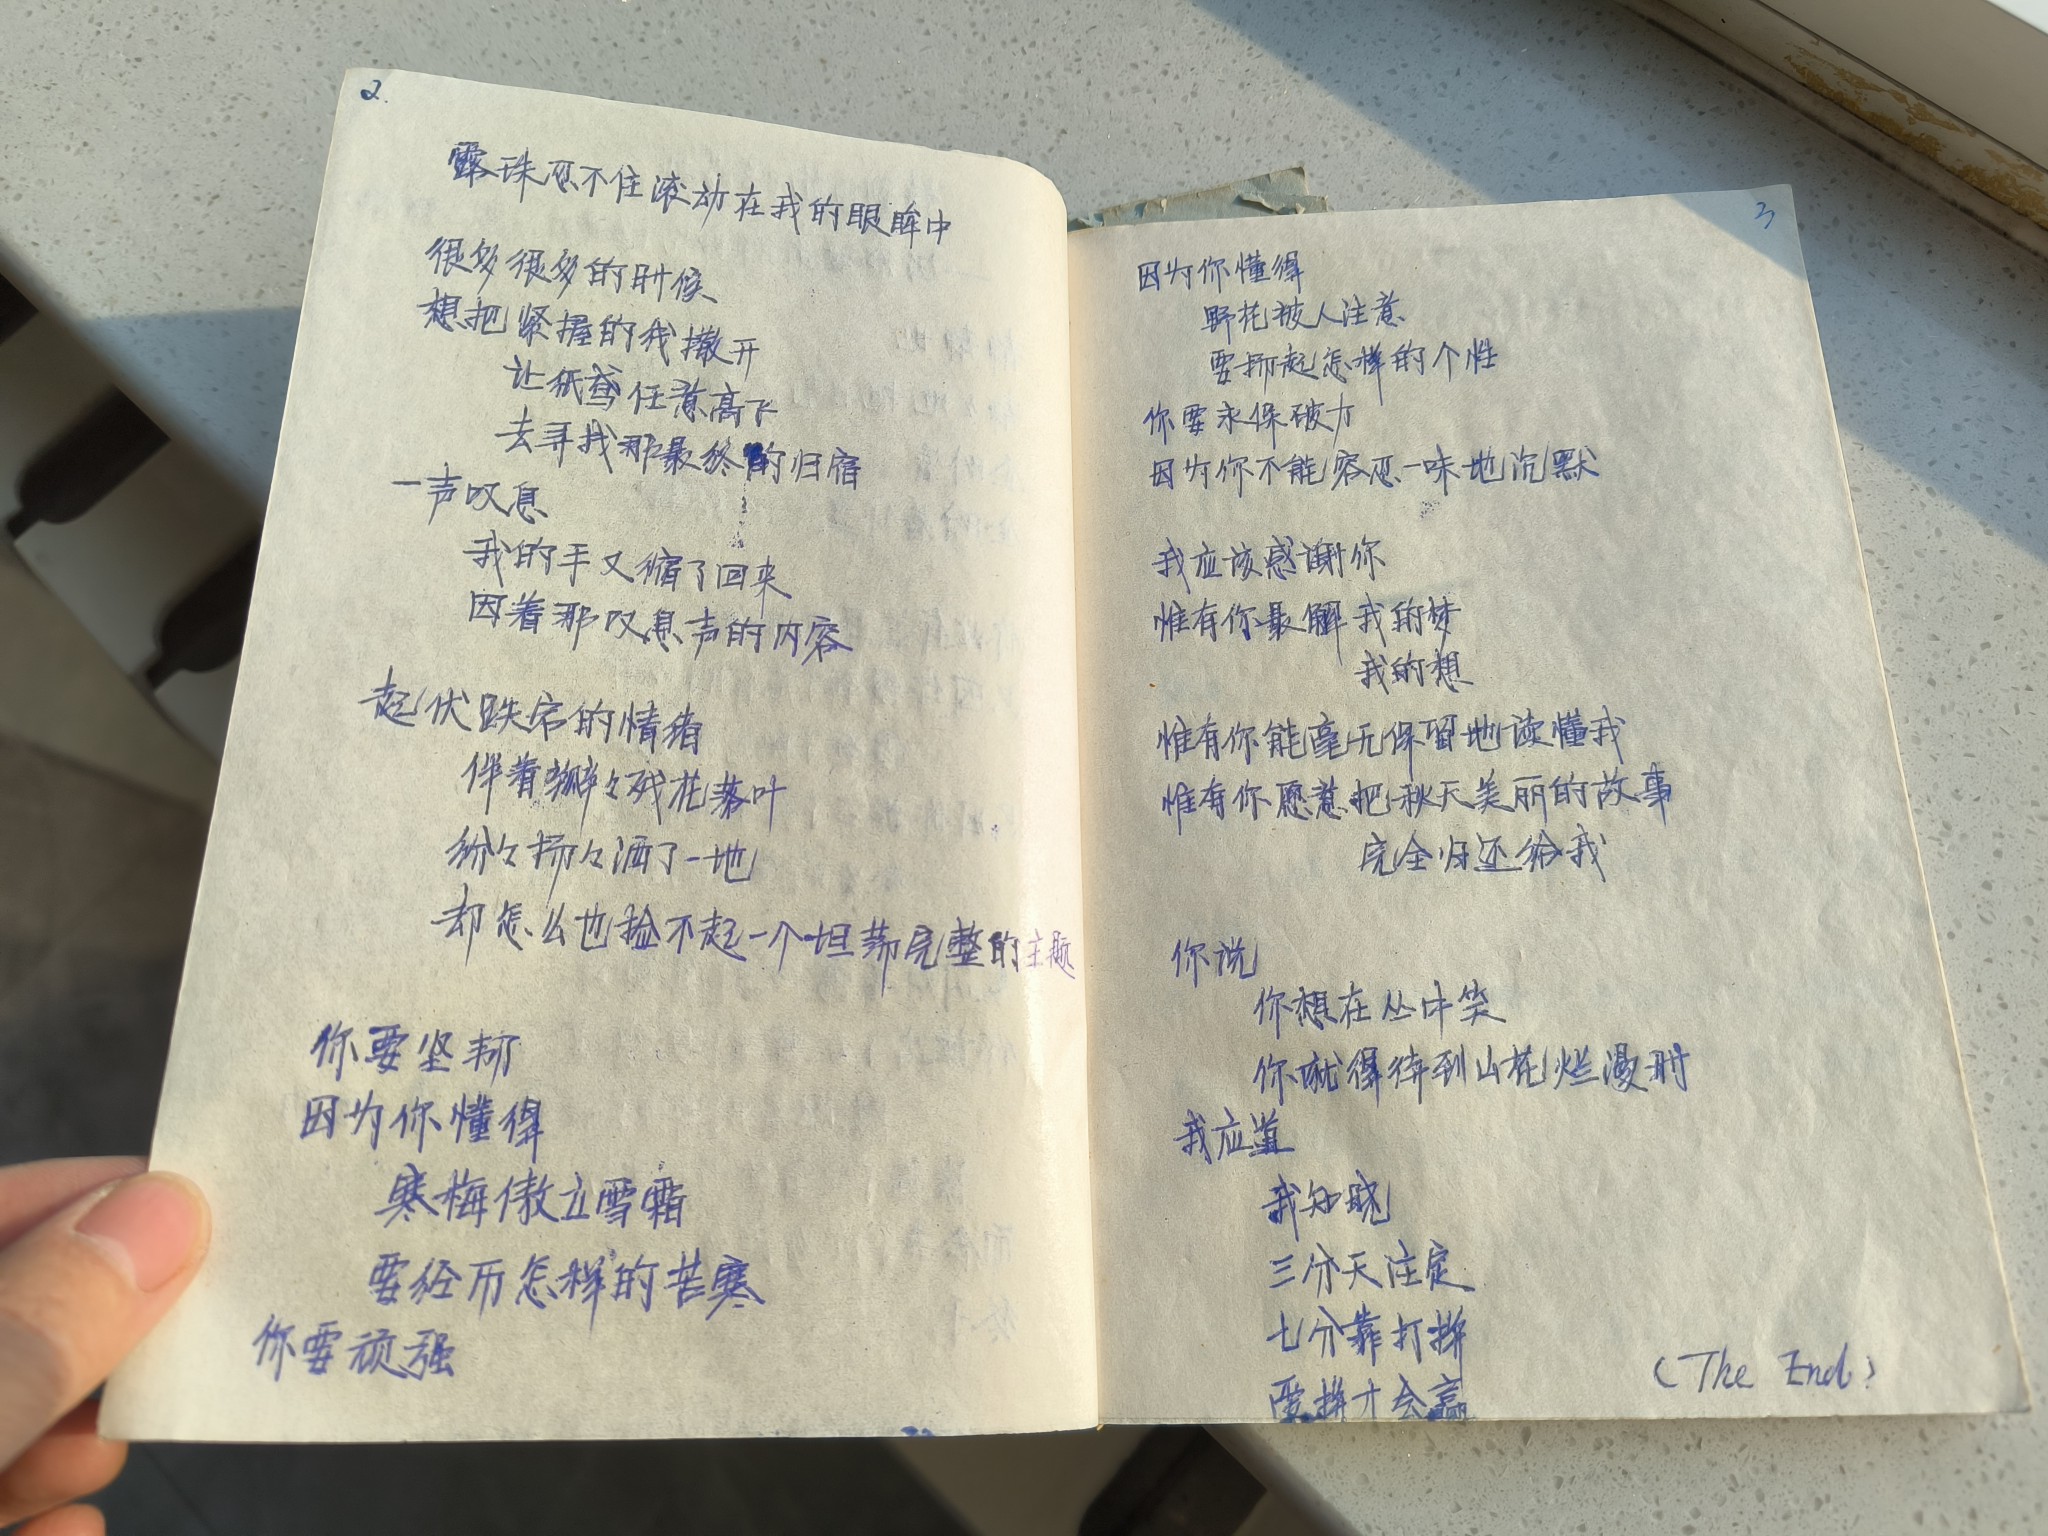 2.
露珠忍不住滚动在我的眼眸中
很多很多的时候
想把紧握的我撒开
让纸鸢任意高飞
去寻找那最终的归宿
一声叹息
我的手又缩了回来
因着那叹息声的内容
起伏跌宕的情绪
伴着瓣々残花落叶
纷々扬々洒了一地
却怎么也捡不起一个坦荡完整的主题
你要坚韧
因为你懂得
寒梅傲立雪霜
要经历怎样的苦寒
你要顽强
3
因为你懂得
野花被人注意
要扬起怎样的个性
你要永保破力
因为你不能容忍一味地沉默
我应该感谢你
惟有你最解我的梦
我的想
惟有你能毫无保留地读懂我
惟有你愿意把秋天美丽的故事
完全归还给我
你说
你想在丛中笑
你就得待到山花烂漫时
我应道
我知晓
三分天注定
七分靠打拼
要拼才会赢
(The End)